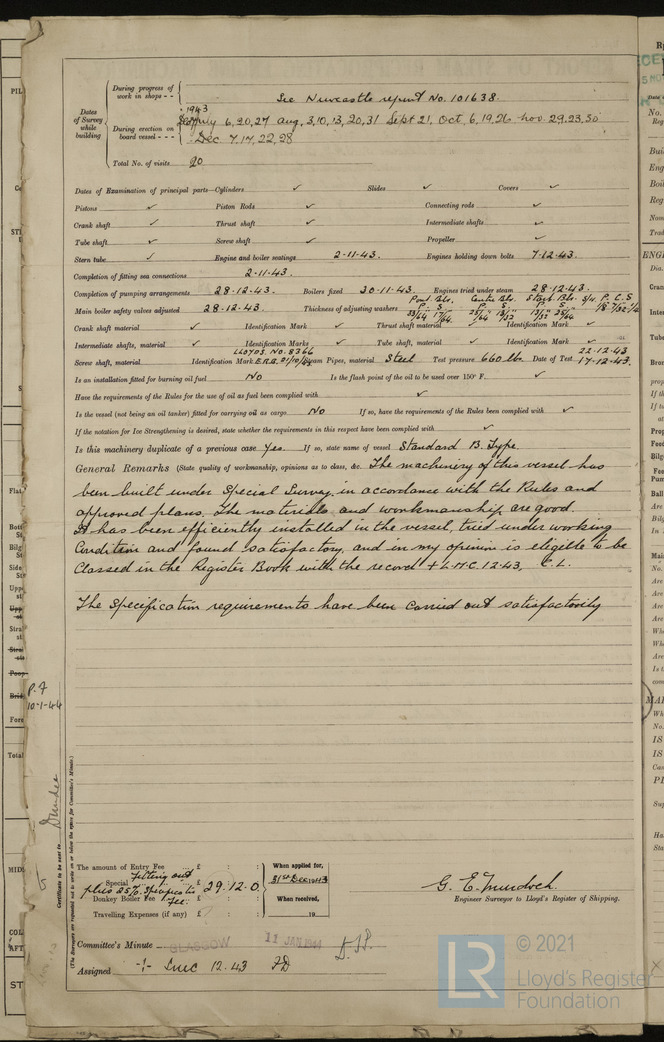 During progress of
work in shops - -
See Newcastle report No. 101638.
Dates
of Survey
while
building
1943
During erection on
board vessel - - -
July 6, 20, 27 Aug, 3, 10, 13, 20, 31 Sept 21, Oct 6, 19, 26 Nov. 29, 23, 30
Dec. 7, 17, 22, 28
Total No. of visits 20
Dates of Examination of principal parts—Cylinders ✓ Slides ✓ Covers ✓
Pistons ✓ Piston Rods ✓ Connecting rods ✓
Crank shaft ✓ Thrust shaft ✓ Intermediate shafts ✓
Tube shaft ✓ Screw shaft ✓ Propeller ✓
Stern tube ✓ Engine and boiler seatings 2-11-43. Engines holding down bolts 7-12-43.
Completion of fitting sea connections 2-11-43.
Completion of pumping arrangements 28-12-43. Boilers fixed 30-11-43. Engines tried under steam 28-12-43.
Main boiler safety valves adjusted 28-12-43. Thickness of adjusting washers
Crank shaft material ✓ Identification Mark ✓ Thrust shaft material Identification Mark ✓
Intermediate shafts, material ✓ Identification Marks ✓ Tube shaft, material ✓ Identification Mark ✓
LLOYDS. NO. 8366 22-12-43
Screw shaft, material Identification Mark Steam Pipes, material Steel Test pressure 660 lb. Date of Test 17-12-43.
Is an installation fitted for burning oil fuel NO Is the flash point of the oil to be used over 150° F. ✓
Have the requirements of the Rules for the use of oil as fuel been complied with ✓
Is the vessel (not being an oil tanker) fitted for carrying oil as cargo NO If so, have the requirements of the Rules been complied with ✓
If the notation for Ice Strengthening is desired, state whether the requirements in this respect have been complied with ✓
Is this machinery duplicate of a previous case Yes. If so, state name of vessel Standard B. Type.
General Remarks (State quality of workmanship, opinions as to class, &c. The machinery of this vessel has
been built under Special Survey, in accordance with the Rules and
approved plans. The materials and workmanship are good.
It has been efficiently installed in the vessel, tried under working
Condition and found satisfactory, and in my opinion is eligible to be
Classed in the Register Book with the record + L.M.C. 12.43, C.L.
The Specification requirements have been carried out satisfactorily
10-1-44
Dundee
Certificate to be sent to
(The Surveyors are requested not to write on or below the space for Committee's Minute.)
The amount of Entry Fee £ : :
Special Fitting out £
plus 25% Specification Fee: 29.12.0
Donkey Boiler Fee £
Travelling Expenses (if any) £ : :
When applied for,
31st Dec 1943
When received,
19
G. E. Murdoch.
Engineer Surveyor to Lloyd's Register of Shipping.
Committee's Minute GLASGOW 11 JAN 1944
Assigned + LMC 12.43 FD
© 2021
Lloyd's Register
Foundation